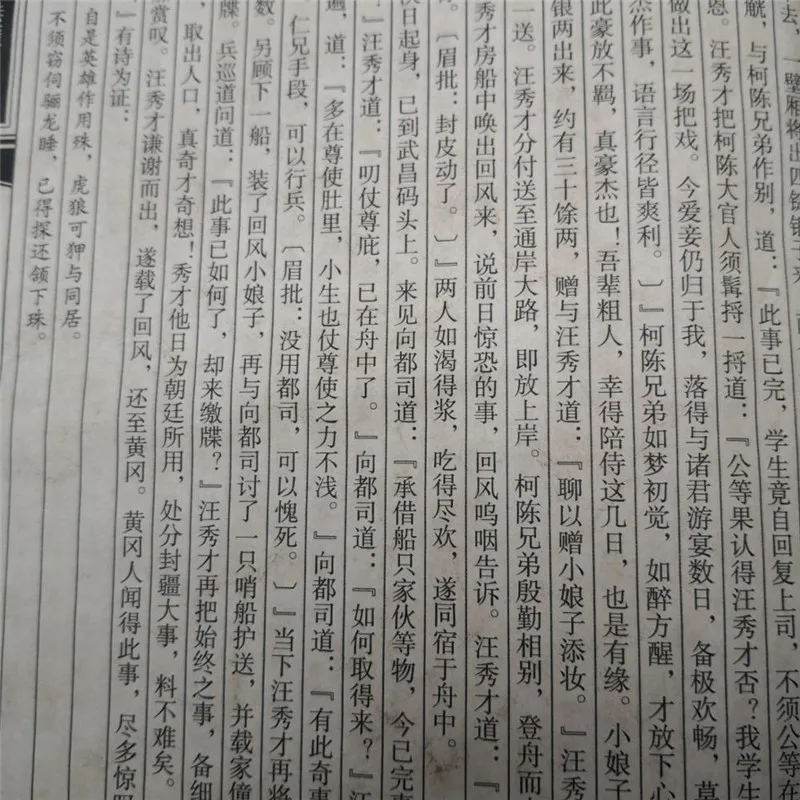 去，一壁厢将出四锭银子来
觥，与柯陈兄弟作别，道：『此事已完，学生竟自回复上司，不须公等在
恩。汪秀才把柯陈大官人须髯捋一捋道：『公等果认得汪秀才否？我学生
做出这一场把戏。今爱妾仍归于我，落得与诸君游宴数日，备极欢畅，莫
杰作事，语言行径皆爽利。〕』柯陈兄弟如梦初觉，如醉方醒，才放下心
此豪放不羁，真豪杰也！吾辈粗人，幸得陪侍这几日，也是有缘。小娘子
银两出来，约有三十馀两，赠与汪秀才道：『聊以赠小娘子添妆。』汪秀
一送。汪秀才分付送至通岸大路，即放上岸。柯陈兄弟殷勤相别，登舟而
秀才房船中唤出回风来，说前日惊恐的事，回风呜咽告诉。汪秀才道：『
。〔眉批：封皮动了。〕』两人如渴得浆，吃得尽欢，遂同宿于舟中。
次日起身，已到武昌码头上。来见向都司道：『承借船只家伙等物，今已完
』汪秀才道：『叨仗尊庇，已在舟中了。』向都司道：『如何取得来？』汪
遍，道：『多在尊使肚里，小生也仗尊使之力不浅。』向都司道：『有此奇事
仁兄手段，可以行兵。〔眉批：没用都司，可以愧死。〕』当下汪秀才再将
数。另顾下一船，装了回风小娘子，再与向都司讨了一只哨船护送，并载家僮
牒。兵巡道问道：『此事已如何了，却来缴牒？』汪秀才再把始终之事，备细
，取出人口，真奇才奇想！秀才他日为朝廷所用，处分封疆大事，料不难矣。
赏叹。汪秀才谦谢而出，遂载了回风，还至黄冈。黄冈人闻得此事，尽多惊叹
，有诗为证：
自是英雄作用殊，虎狼可狎与同居。
不须窃伺骊龙睡，已得探还颔下珠。